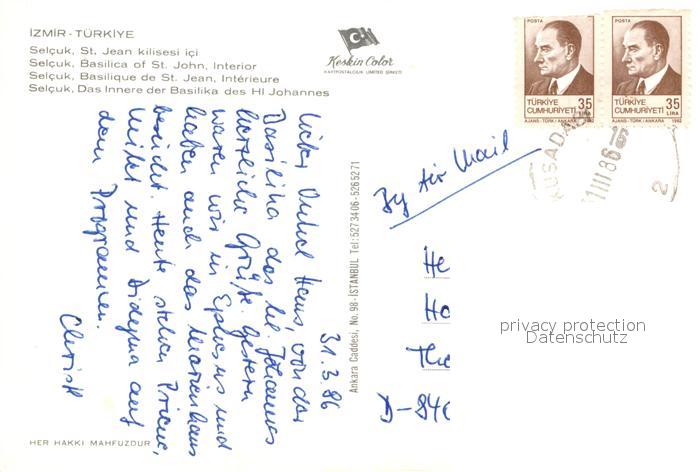 İZMİR - TÜRKİYE
Selçuk, St. Jean kilisesi içi
Selçuk, Basilica of St. John, Interior
Selçuk, Basilique de St. Jean, Intérieure
Selçuk, Das Innere der Basilika des Hl Johannes
Keskin Color
KARTPOSTALCILIK LIMITED ŞİRKETİ
POSTA
TÜRKİYE 35
CUMHURİYETİ LİRA
AJANS-TÜRK/ANKARA 1982
POSTA
TÜRKİYE 35
CUMHURİYETİ LİRA
AJANS-TÜRK/ANKARA 1982
KUSADASI
III 86
2
31.3.86
Lieber Onkel Hans, von der
Basilika des hl. Johannes
herzliche Grüße. Gestern
waren wir in Ephesus und
haben auch das Marienhaus
besucht. Heute stehen Priene,
Milet und Didyma auf
dem Programm.
Christl
Ankara Caddesi, No. 98 - İSTANBUL Tel: 5273406-5265271
By Air Mail
He
Ho
The
D-840
privacy protection
Datenschutz
HER HAKKI MAHFUZDUR